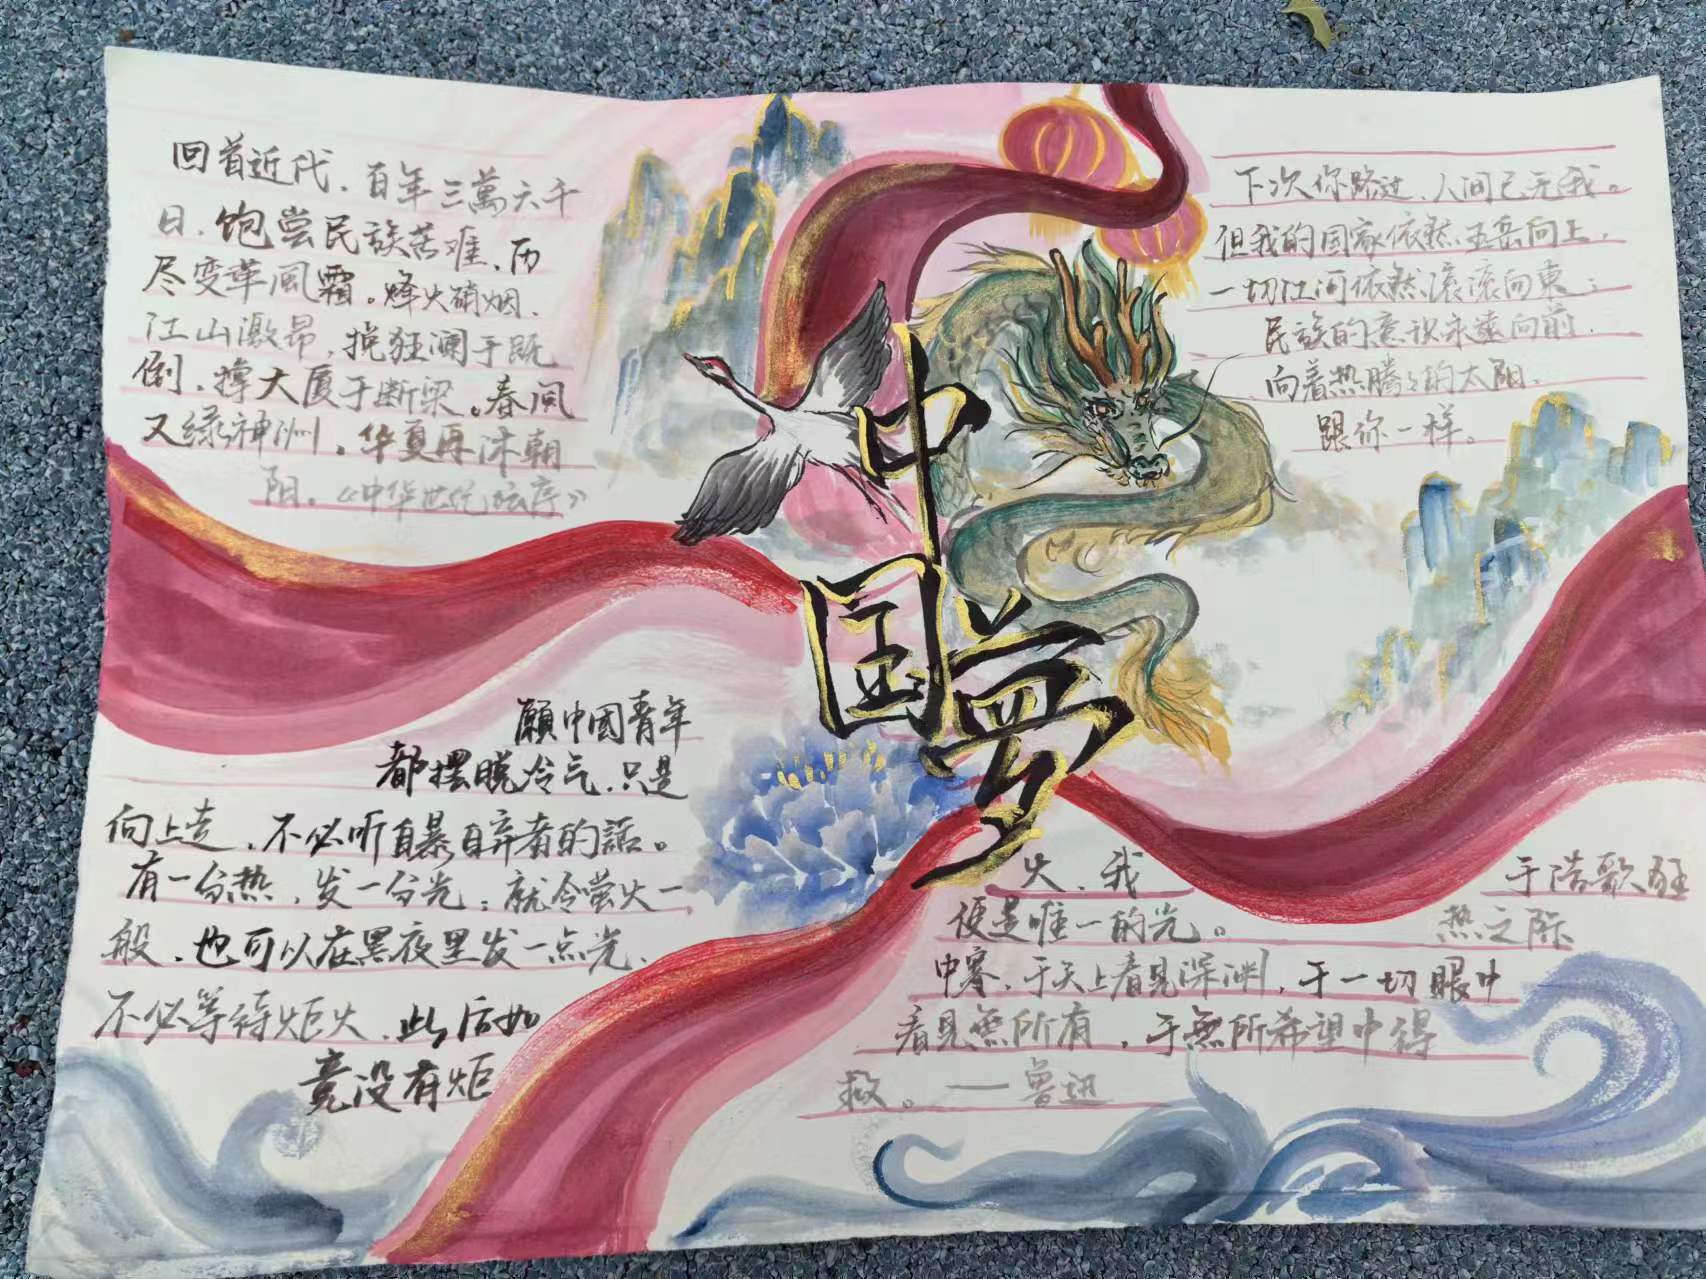 回首近代，百年三萬六千
日，饱尝民族苦难，历
尽变革風霜。烽火硝烟，
江山激昂，挽狂澜于既
倒，撑大厦于断梁。春風
又绿神洲，华夏再沐朝
阳。《中华世纪坛序》
下次你路过，人间已无我。
但我的国家依然五岳向上，
一切江河依然滚滚向東；
民族的意识永遠向前，
向着热腾腾的太阳，
跟你一样。
中
国
梦
願中國青年
都摆脱冷气，只是
向上走，不必听自暴自弃者的話。
有一分热，发一分光；就令萤火一
般，也可以在黑夜里发一点光，
不必等待炬火，此后如
竟没有炬
火，我
便是唯一的光。
于浩歌狂
热之际
中寒，于天上看見深渊，于一切眼中
看見無所有，于無所希望中得
救。——鲁迅